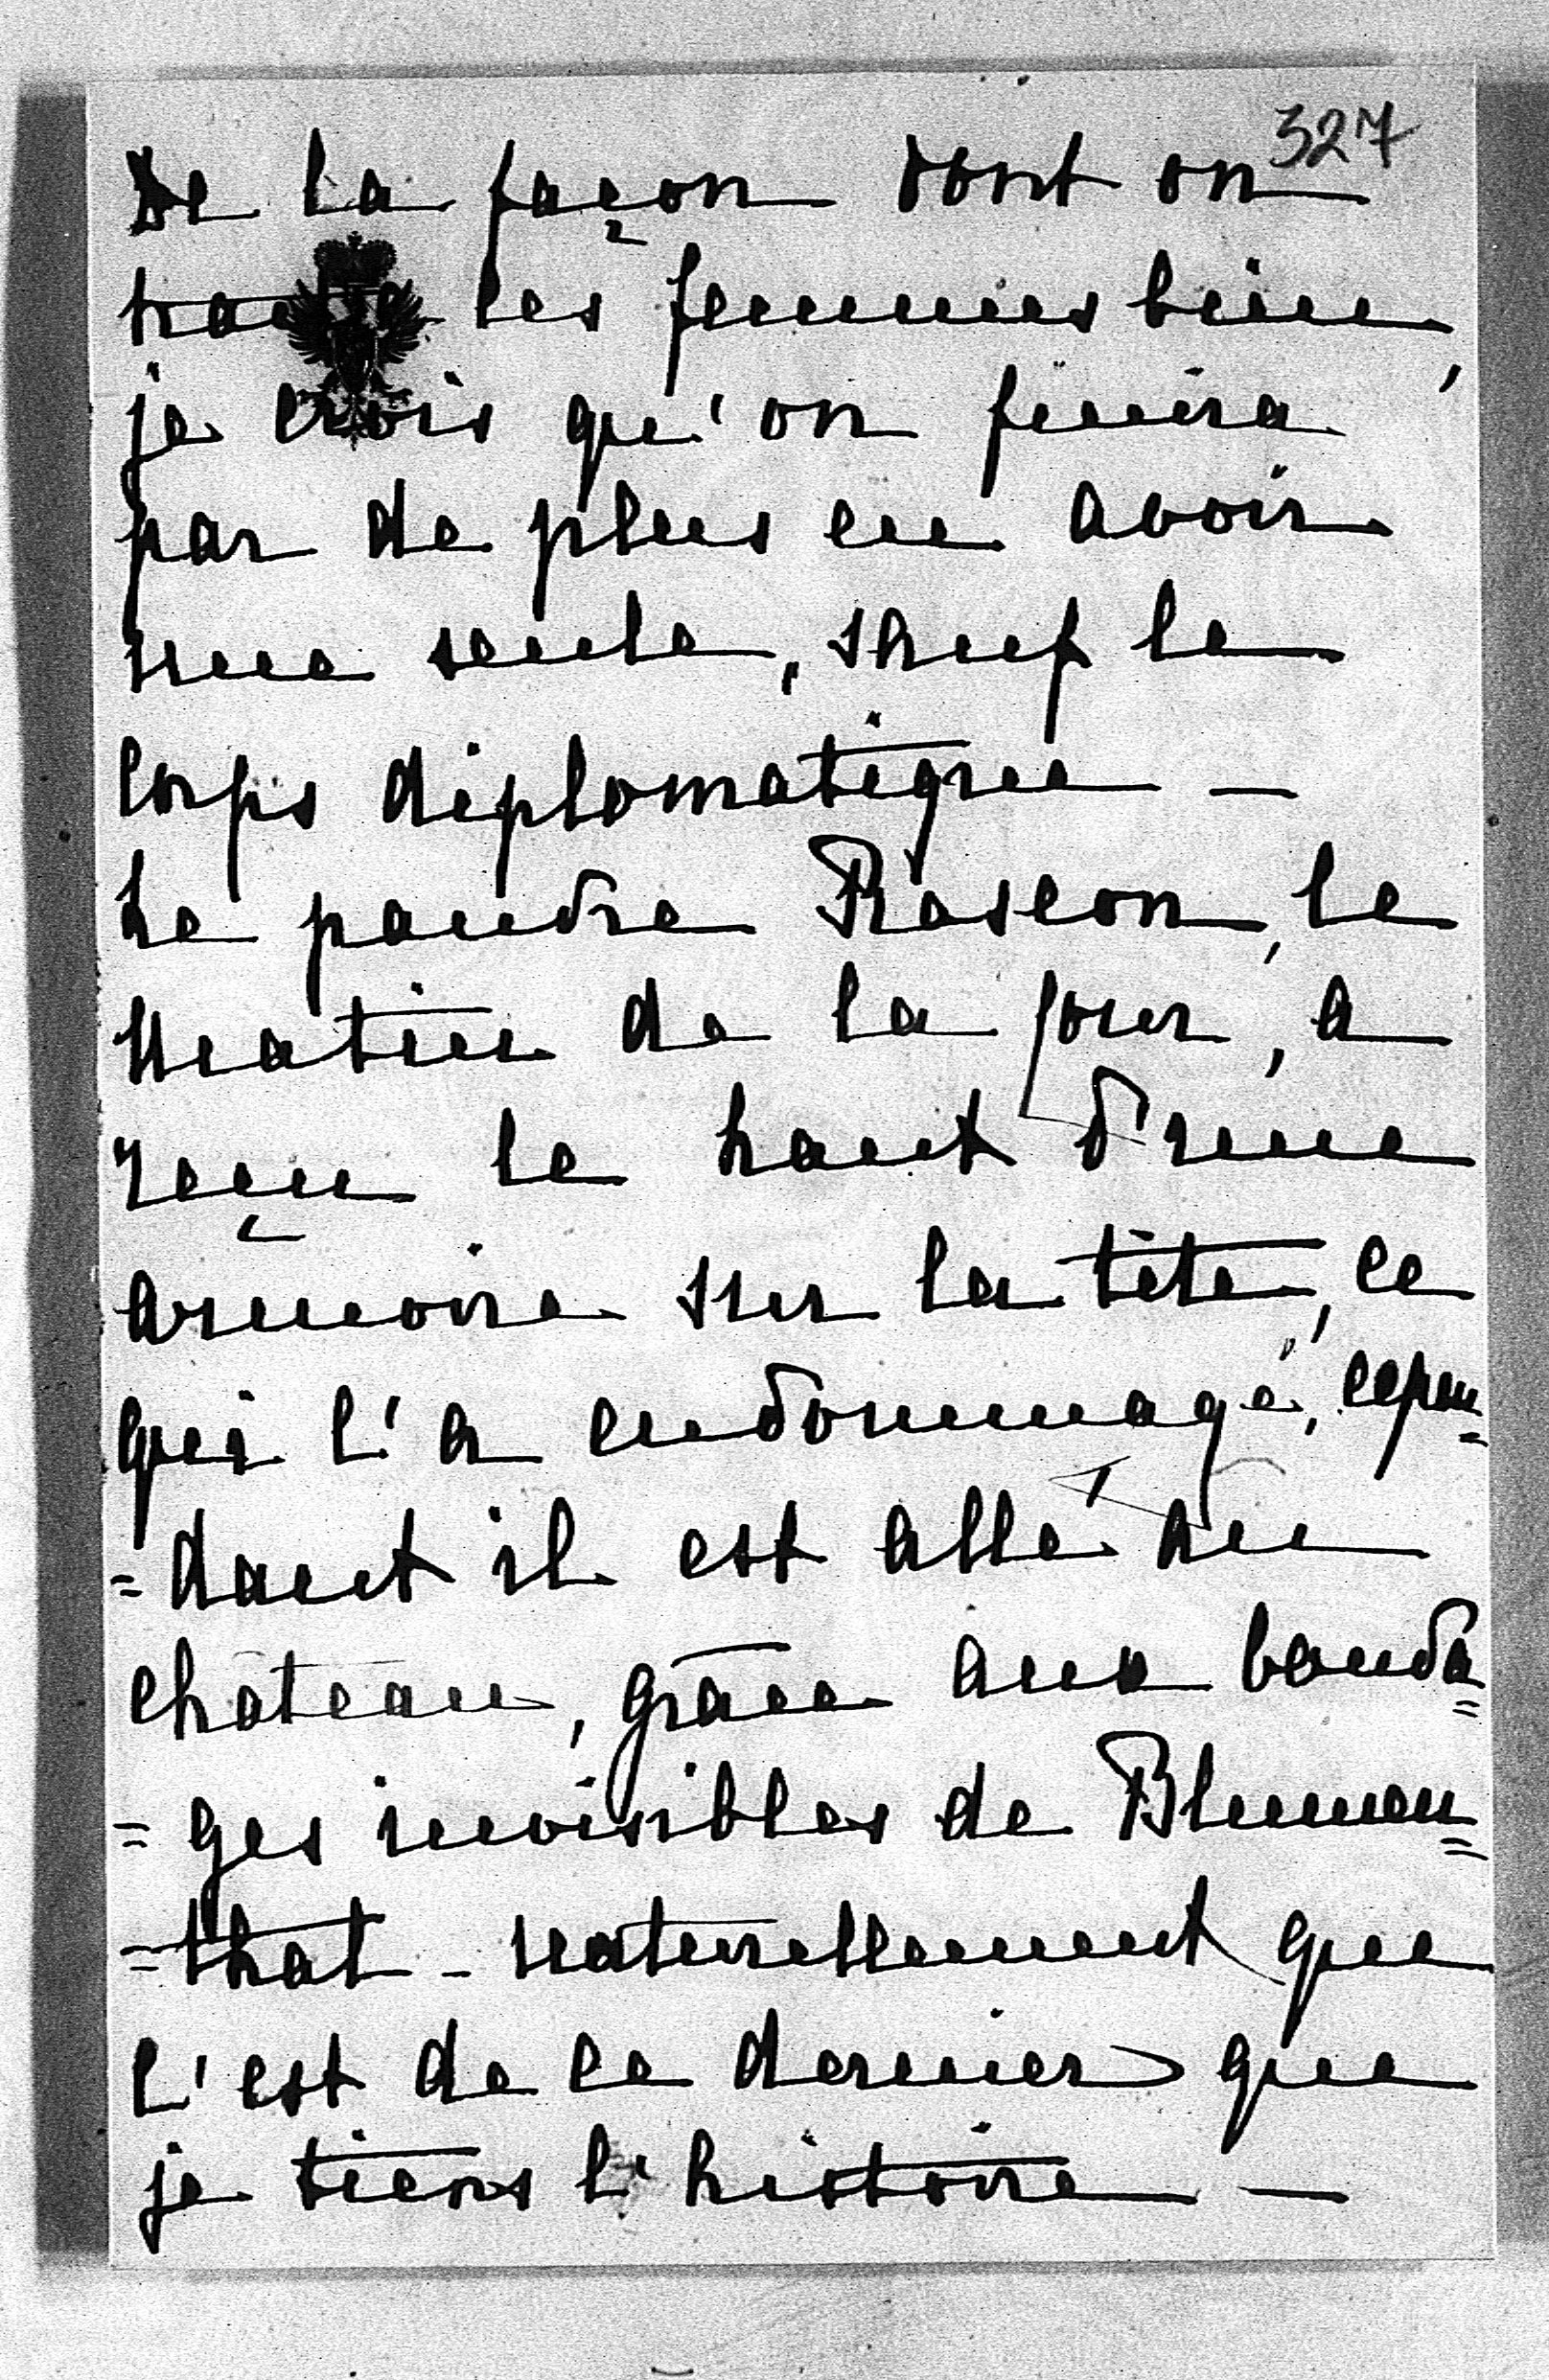 327
De la façon dont on
traite les femmes bien,
je crois qu'on finira
par de plus en avoir
une seule, sauf le
corps diplomatique —
Le pauvre Rascon, le
matin de la four, a
reçu le haut d'une
armoire sur la tête, ce
qui l'a endommagé, cepen=
=dant il est allé au
château, grâce aux banda=
=ges invisibles de Blumen=
=that - naturellement que
c'est de ce dernier que
je tiens l'histoire —